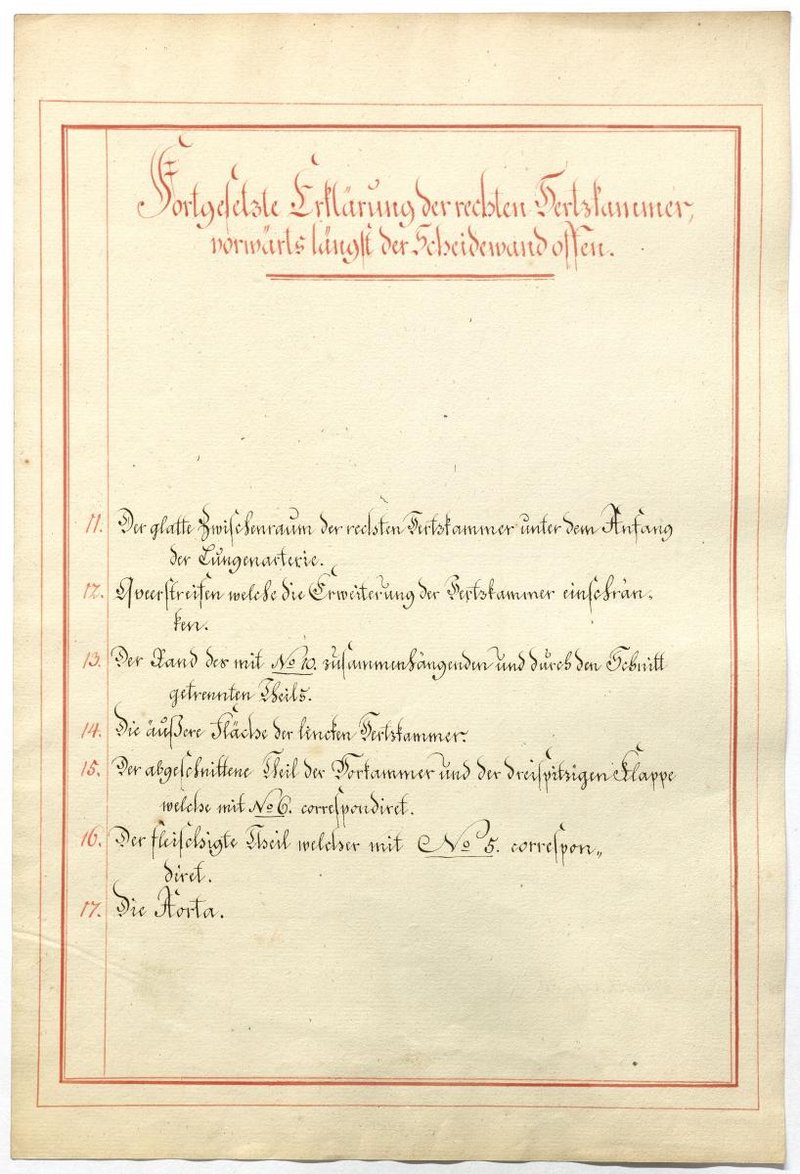 Fortgesetzte Erklärung der rechten Hertzkammer,
vorwärts längst der Scheidewand offen.
11. Der glatte Zwischenraum der rechten Hertzkammer unter dem Anfang
der Lungenarterie.
12. Queerstreifen welche die Erweiterung der Hertzkammer einschrän-
ken.
13. Der Rand des mit No 10. zusammenhängenden und durch den Schnitt
getrennten Theils.
14. Die äußere Fläche der lincken Hertzkammer.
15. Der abgeschnittene Theil der Vorkammer und der dreispitzigen Klappe
welche mit No 6. correspondiret.
16. Der fleischigte Theil welcher mit No 5. correspon„
diret.
17. Die Aorta.